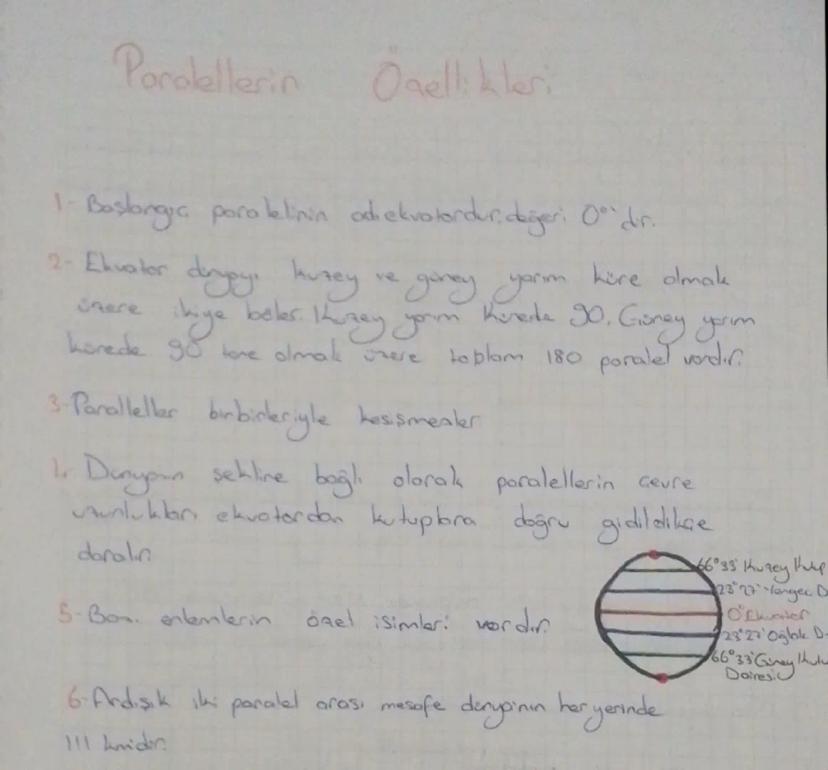 Paralellerin Özellikleri
1- Başlangıç paralelinin adı ekvatordur. değeri 0°'dir.
2- Ekvator dünyayı kuzey ve güney yarım küre olmak
üzere ikiye böler. Kuzey yarım kürede 90, Güney yarım
kürede 90 tane olmak üzere toplam 180 paralel vardır.
3- Paralleller birbirleriyle kesişmezler
4. Dünyanın şekline bağlı olarak paralellerin çevre
uzunlukları ekvatordan kutuplara doğru gidildikçe
daralır
5- Bazı enlemlerin özel isimleri vardır.
6- Ardışık iki paralel arası mesafe dünyanın her yerinde
111 kmidir.
66°33' Kuzey
23°27' Yengeç D
0° Ekvator
23°27' Oğlak D-
66°33' Güney
Dairesi